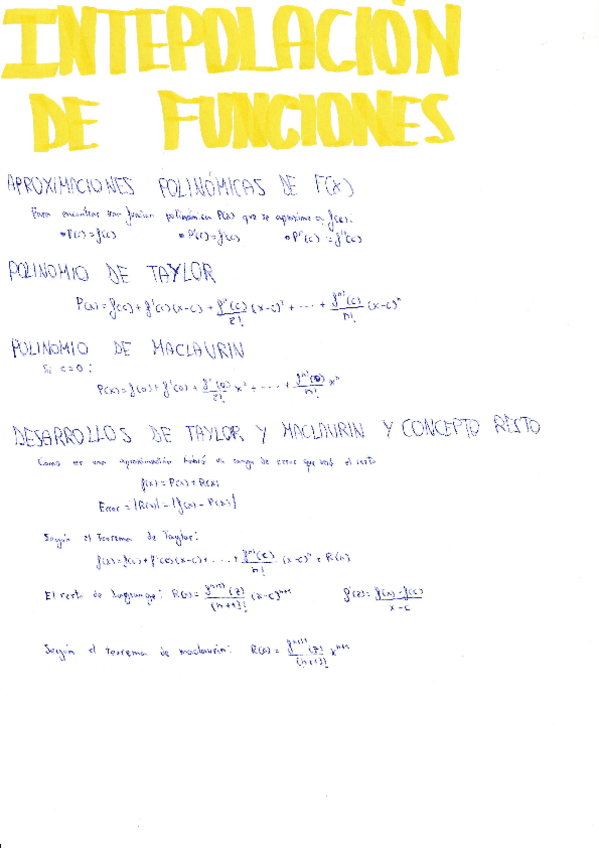 INTEPOLACIÓN
DE FUNCIONES
APROXIMACIONES POLINÓMICAS DE F(X)
Para encontrar una funcion polinómica P(x) que se aproxime a f(x):
• P(c)=f(c) • P'(c)=f'(c) • P''(c)=f''(c)
POLINOMIO DE TAYLOR
P(x)=f(c)+f'(c)(x-c)+f''(c)/2! (x-c)²+ ···· + fⁿ⁾(c)/n! (x-c)ⁿ
POLINOMIO DE MACLAURIN
Si c=0:
P(x)=f(0)+f'(0)+f''(0)/2! x²+ ···· + fⁿ⁾(0)/n! xⁿ
DESARROLLOS DE TAYLOR Y MACLAURIN Y CONCEPTO RESTO
Como es una aproximación habrá un rango de error que será el resto
f(x)=P(x)+R(x)
Error=|R(x)|=|f(x)-P(x)|
Según el Teorema de Taylor:
f(x)=f(c)+f'(c)(x-c)+ ···· + fⁿ⁾(c)/n! (x-c)ⁿ+R(x)
El resto de Lagrange: R(x)= fⁿ⁺¹⁾(z)/(n+1)! (x-c)ⁿ⁺¹ f'(z)= f(x)-f(c)/x-c
Según el teorema de maclaurin: R(x)= fⁿ⁺¹⁾(z)/(n+1)! xⁿ⁺¹